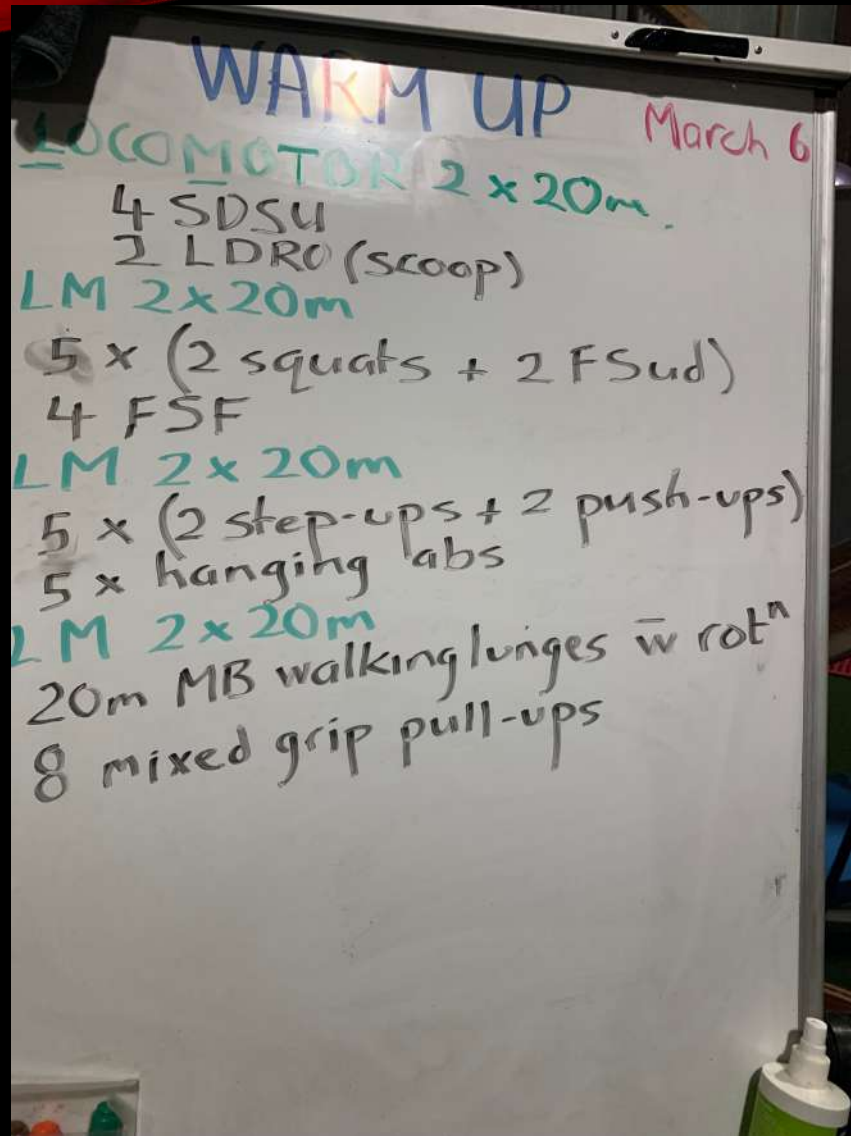 WARM UP
March 6
LOCOMOTOR 2 x 20m.
4 SDSU
2 LDRO (scoop)
LM 2x20m
5 x (2 squats + 2 FSud)
4 FSF
LM 2x20m
5 x (2 step-ups + 2 push-ups)
5 x hanging abs
LM 2x20m
20m MB walking lunges w̄ rotⁿ
8 mixed grip pull-ups